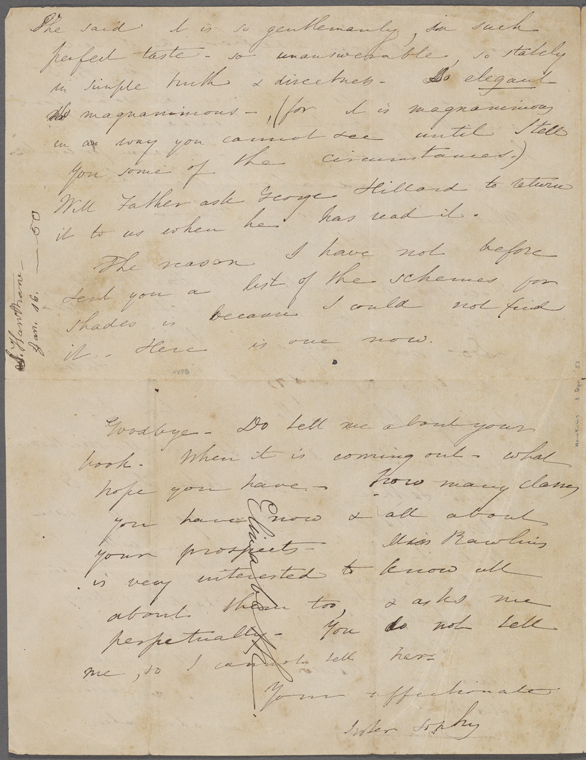 She said it is so gentlemanly, in such
perfect taste - so unanswerable, so stately
in simple truth & directness. So elegant
magnanimous -, (for it is magnanimous
in a way you cannot see until I tell
you some of the circumstances.)
Will Father ask George Hillard to return
it to us when he has read it.
The reason I have not before
sent you a list of the schemes for
shades is because I could not find
it. Here is one now.
Goodbye - Do tell me about your
book. When it is coming out - what
hope you have - How many classes
you have now & all about
your prospects - Miss Rawlins
is very interested to know all
about them too, & asks me
perpetually - You do not tell
me, so I cannot tell her.
Your affectionate
sister Sophy
S. Hawthorne
Jan. 16. - 50